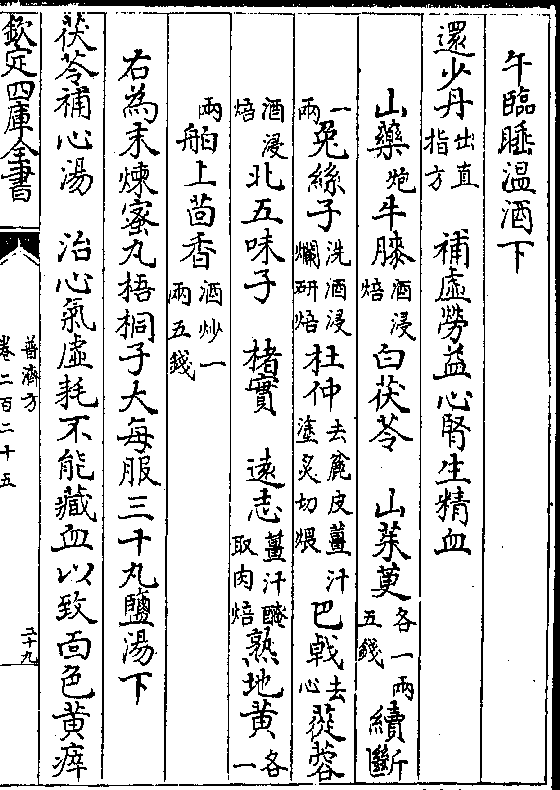 午臨睡温酒下
還少丹出直指方 補虛勞益心腎生精血
山藥炮牛膝酒浸焙白茯苓 山茱萸各一兩五錢續斷
一兩兔絲子洗酒浸爛研焙杜仲去麄皮薑汁塗炙切煨巴戟去心蓯蓉
酒浸焙北五味子 楮實 遠志薑汁醃取肉焙熟地黄各一
兩舶上茴香酒炒一兩五錢
右為末煉蜜丸梧桐子大每服三十丸鹽湯下
茯苓補心湯 治心氣虛耗不能藏血以致面色黄瘁
欽定四庫全書
普濟方
卷二百二十五
三十九